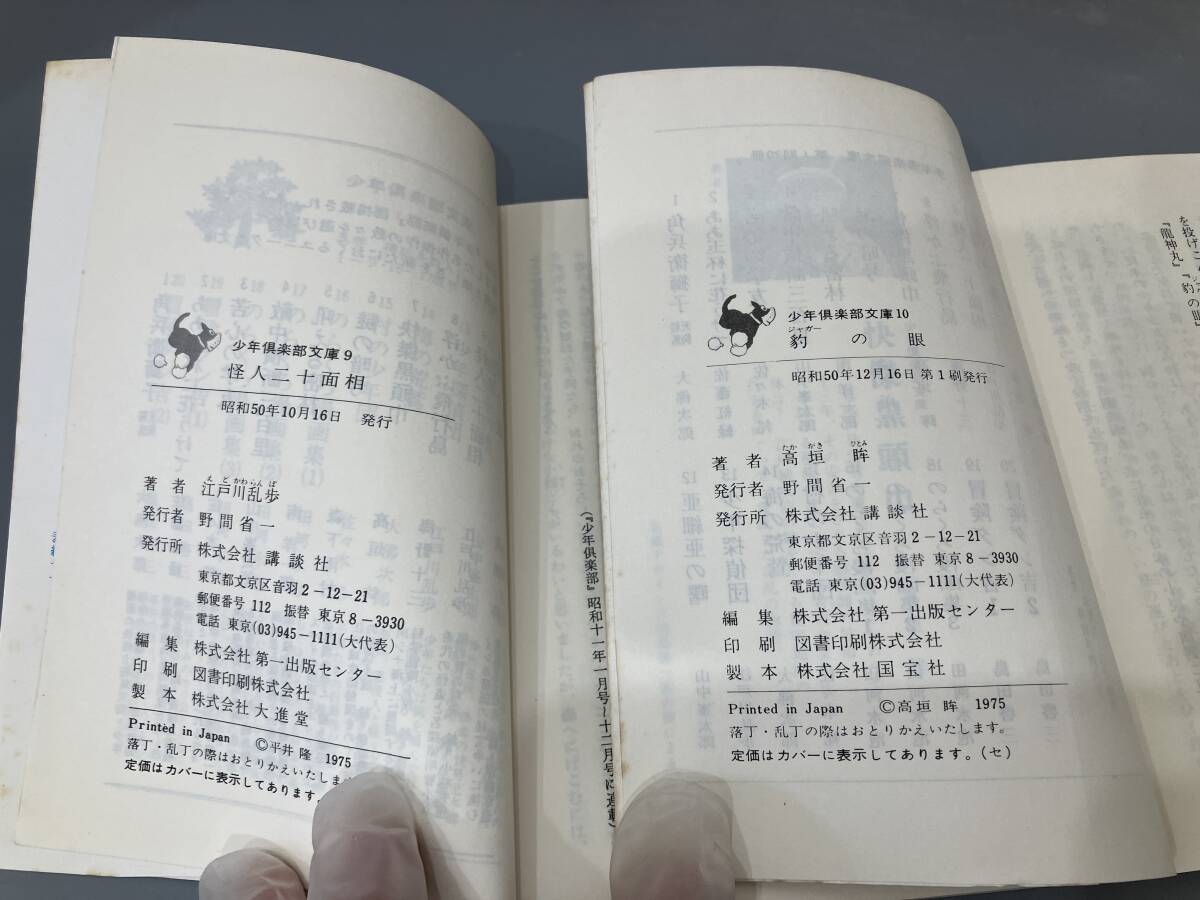 少年倶楽部文庫9
怪人二十面相
昭和50年10月16日 発行
著者 江戸川乱歩
えどかわらんぽ
発行者 野間省一
発行所 株式会社 講談社
東京都文京区音羽2-12-21
郵便番号 112 振替 東京8-3930
電話 東京(03)945-1111(大代表)
編集 株式会社 第一出版センター
印刷 図書印刷株式会社
製本 株式会社 大進堂
Printed in Japan ©平井 隆 1975
落丁・乱丁の際はおとりかえいたします
定価はカバーに表示してあります。
(『少年倶楽部』昭和十一年一月号~十二月号に連載)
少年倶楽部文庫10
ジャガー
豹の眼
昭和50年12月16日 第1刷発行
たかがき ひとみ
著者 高垣 眸
発行者 野間省一
発行所 株式会社 講談社
東京都文京区音羽2-12-21
郵便番号 112 振替 東京8-3930
電話 東京(03)945-1111(大代表)
編集 株式会社 第一出版センター
印刷 図書印刷株式会社
製本 株式会社 国宝社
Printed in Japan ©高垣 眸 1975
落丁・乱丁の際はおとりかえいたします。
定価はカバーに表示してあります。(セ)
を投げこ
『龍神丸』『豹の眼